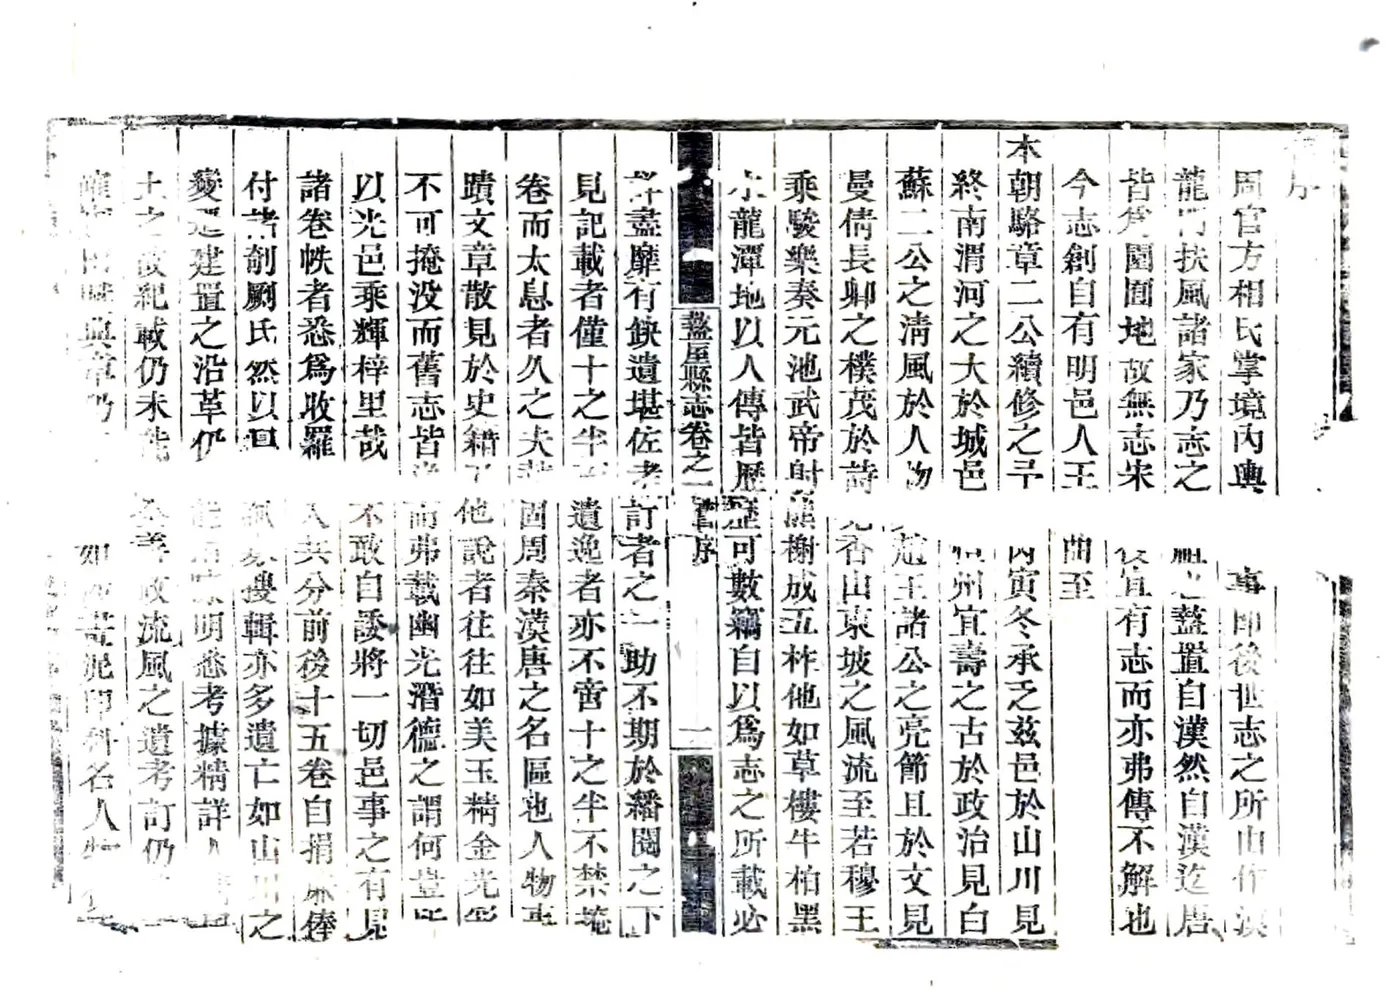 序
周官方相氏掌境內輿事即後世志之所由作漢
龍門扶風諸家乃志之盩厔置自漢然自漢迄唐
皆為園囿地故無志宋宜有志而亦弗傳不解也
今志創自有明邑人王曲至
本朝駱章二公續修之予丙寅冬承乏茲邑於山川見
終南渭河之大於城邑州宜壽之古於政治見白
蘇二公之清風於人物趙王諸公之亮節且於文見
曼倩長卿之樸茂於詩見香山東坡之風流至若穆王
乘駿樂奏元池武帝射熊榭成五柞他如草樓牛柏黑
水龍潭地以人傳皆歷歷可數竊自以為志之所載必
盩厔縣志卷之一 舊序 一
詳盡靡有缺遺堪佐考訂者之一助不期於繙閱之下
見記載者僅十之半遺逸者亦不啻十之半不禁掩
卷而太息者久之夫固周秦漢唐之名區也人物事
蹟文章散見於史籍他說者往往如美玉精金光彩
不可掩沒而舊志皆而弗載幽光潛德之謂何豈所
以光邑乘輝梓里哉不敢自諉將一切邑事之有見
諸卷帙者悉為收羅共分前後十五卷自捐俸
付諸剞劂氏然以搜輯亦多遺亡如山川之
變遷建置之沿革仍明悉考據精詳人
土之故紀載仍未備故流風之遺考訂仍
典章仍如科名人物